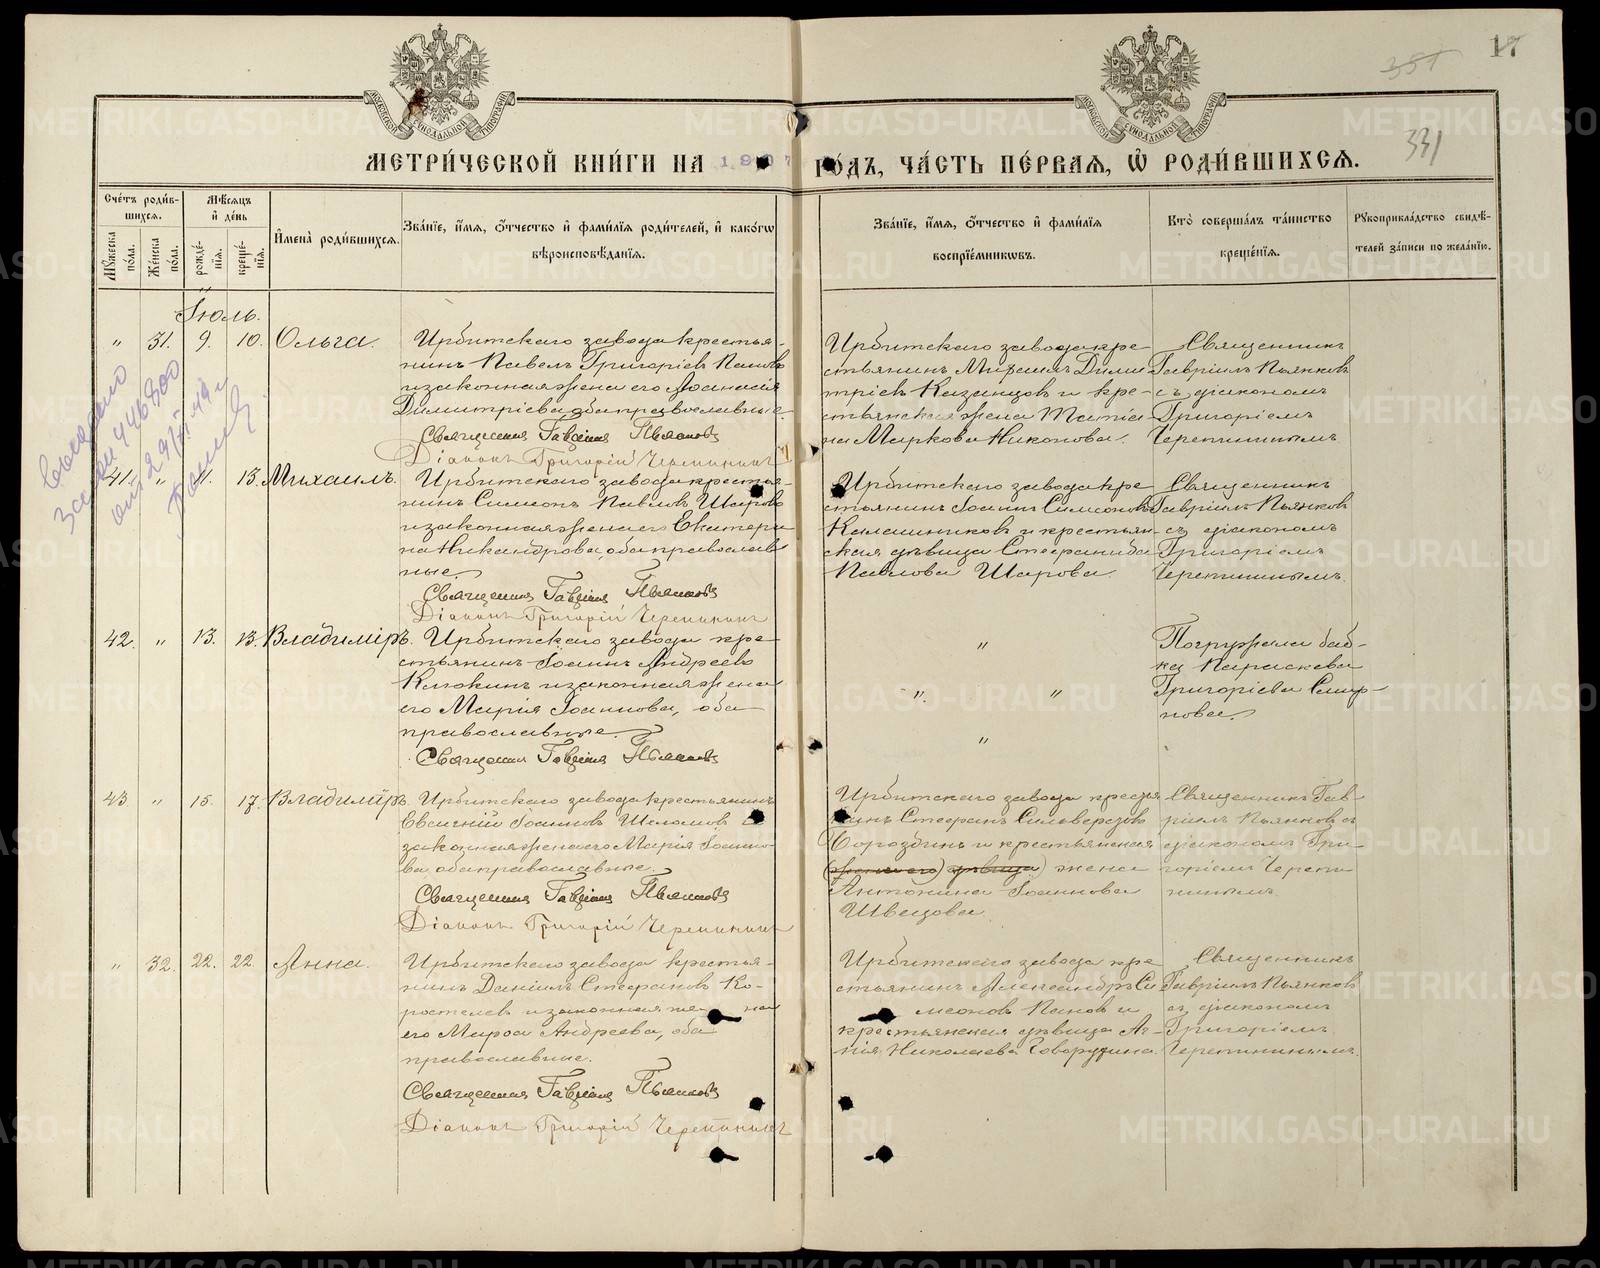 17
351
331
МОСКОВСКОЙ СѴНОДАЛЬНОЙ ТИПОГРАФІИ
МОСКОВСКОЙ СѴНОДАЛЬНОЙ ТИПОГРАФІИ
МЕТРИ́ЧЕСКОЙ КНИ́ГИ НА 1907 ГО́ДЪ, ЧА́СТЬ ПЕ́РВАЯ, Ѽ РОДИ́ВШИХСЯ.
Сче́тъ роди́в-
шихся.
Мѣ́сяцъ
и҆ де́нь
Мꙋ́жеска по́ла.
Же́нска по́ла.
рожде́-
нїя.
креще́-
нїя.
И҆мена̀ роди́вшихся.
Зва́нїе, и҆́мя, ѻ҆́тчество и҆ фами́лїя роди́телей, и҆ како́гѡ
вѣроисповѣ́данїя.
Зва́нїе, и҆́мя, ѻ҆́тчество и҆ фами́лїя
воспрїе́мникѡвъ.
Кто̀ соверша́лъ та́инство
креще́нїя.
Рꙋкоприкла́дство свидѣ́-
телей за́писи по жела́нїю.
Іюль.
" 31. 9. 10. Ольга.
Ирбитскаго завода крестья-
нинъ Павелъ Григоріевъ Пановъ
и законная жена его Аѳанасія
Димитріева оба православные.
Священник Гавріил Пьянковъ
Діаконъ Григорій Черепининъ
Ирбитскаго завода кре-
стьянинъ Михаилъ Дими
тріевъ Казанцовъ и кре-
стьянская жена Татіа-
на Маркова Никонова.
Священникъ
Гавріилъ Пьянков
съ діакономъ
Григоріемъ
Черепининымъ
41. " 11. 13. Михаилъ.
Ирбитскаго завода крестья-
нинъ Симеонъ Павловъ Шаровъ
и законная жена его Екатери
на Никандрова, оба православ
ные.
Священник Гавріил Пьянковъ
Діаконъ Григорій Черепининъ
Ирбитскаго завода кре
стьянинъ Іоаннъ Симеоновъ
Калашниковъ и крестьян-
ская дѣвица Стефанида
Павлова Шарова.
Священникъ
Гавріилъ Пьянков
съ діакономъ
Григоріемъ
Черепининымъ.
42. " 13. 13. Владиміръ.
Ирбитскаго завода кре-
стьянинъ Іоаннъ Андреевъ
Клюкинъ и законная жена
его Марія Іоаннова, оба
православные.
Священник Гавріил Пьянковъ
"
" "
"
Погружала баб-
ка Параскева
Григоріева Смир-
нова.
43. " 15. 17. Владиміръ.
Ирбитскаго завода крестьянинъ
Евгеній Іоанновъ Шеломовъ и
законная жена его Марія Іоанно-
ва, оба православные.
Священник Гавріил Пьянковъ
Діаконъ Григорій Черепининъ
Ирбитскаго завода крестья
нинъ Стефанъ Сильверстовъ
Бороздинъ и крестьянская
(жена его) дѣвица) жена
Антонина Іоаннова
Швецова.
Священникъ Гав-
ріилъ Пьянковъ съ
діакономъ Гри-
горіемъ Черепи
нинымъ
" 32. 22. 22. Анна.
Ирбитскаго завода крестья-
нинъ Даніилъ Стефановъ Ко-
ростелевъ и законная же на
его Мавра Андреева, оба
православные.
Священник Гавріил Пьянковъ
Діаконъ Григорій Черепининъ
Ирбитскаго завода кре
стьянинъ Александръ Си
меоновъ Пановъ и
крестьянская дѣвица Аг-
нія Николаева Говорухина.
Священникъ
Гавріилъ Пьянков
съ діакономъ
Григоріемъ
Черепининымъ.
METRIKI.GASO-URAL.RU